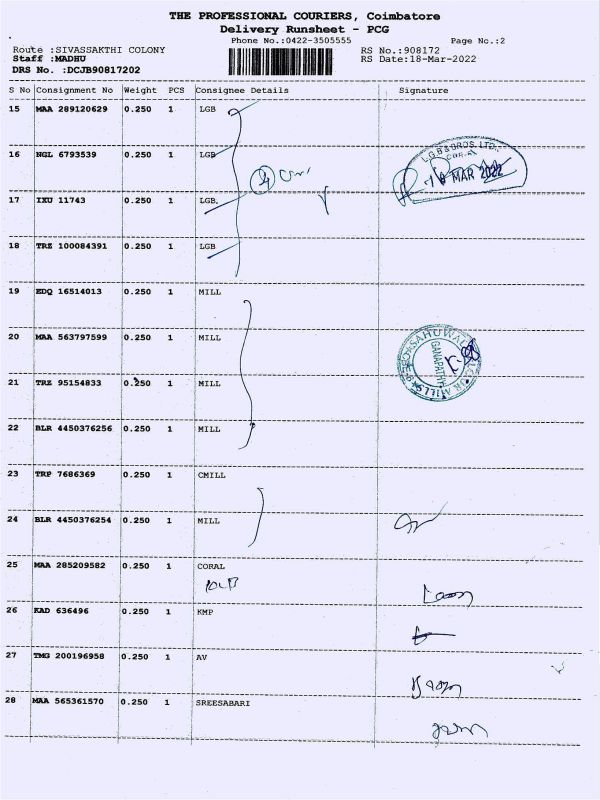 THE PROFESSIONAL COURIERS, Coimbatore
Delivery Runsheet - PCG
Phone No.:0422-3505555 Page No.:2
Route :SIVASSAKTHI COLONY RS No.:908172
Staff :MADHU RS Date:18-Mar-2022
DRS No. :DCJB90817202
S No Consignment No Weight PCS Consignee Details Signature
15 MAA 289120629 0.250 1 LGB
16 NGL 6793539 0.250 1 LGB
L.G.B & BROS. LTD.,
18 MAR 2022
17 IXU 11743 0.250 1 LGB.
18 TRZ 100084391 0.250 1 LGB
19 EDQ 16514013 0.250 1 MILL
20 MAA 563797599 0.250 1 MILL
GANAPATHY
21 TRZ 95154833 0.250 1 MILL
22 BLR 4450376256 0.250 1 MILL
23 TRP 7686369 0.250 1 CMILL
24 BLR 4450376254 0.250 1 MILL
25 MAA 285209582 0.250 1 CORAL
26 KAD 636496 0.250 1 KMP
27 TMG 200196958 0.250 1 AV
28 MAA 565361570 0.250 1 SREESABARI